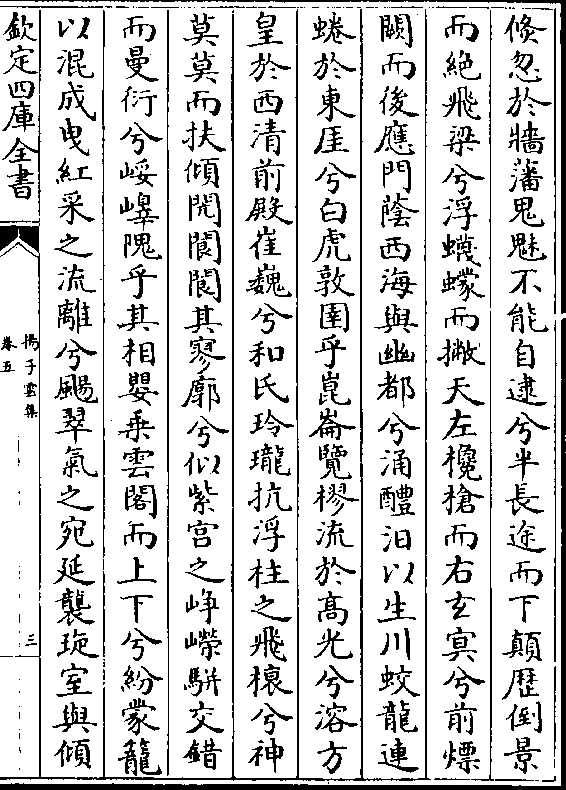 倐忽於牆藩鬼魅不能自逮兮半長途而下顛歴倒景
而絶飛梁兮浮蠛蠓而撇天左欃槍而右玄㝠兮前熛
闕而後應門蔭西海與幽都兮涌醴汨以生川蛟龍連
蜷於東厓兮白虎敦圉乎崑崙覽樛流於髙光兮溶方
皇於西清前殿崔巍兮和氏玲瓏抗浮柱之飛榱兮神
莫莫而扶傾閌閬閬其寥廓兮似紫宮之崢嶸駢交錯
而曼衍兮㟎嶵隗乎其相嬰乗雲閣而上下兮紛蒙籠
以混成曳紅采之流離兮颺翠氣之宛延襲琁室與傾
欽定四庫全書
揚子雲集
卷五
三